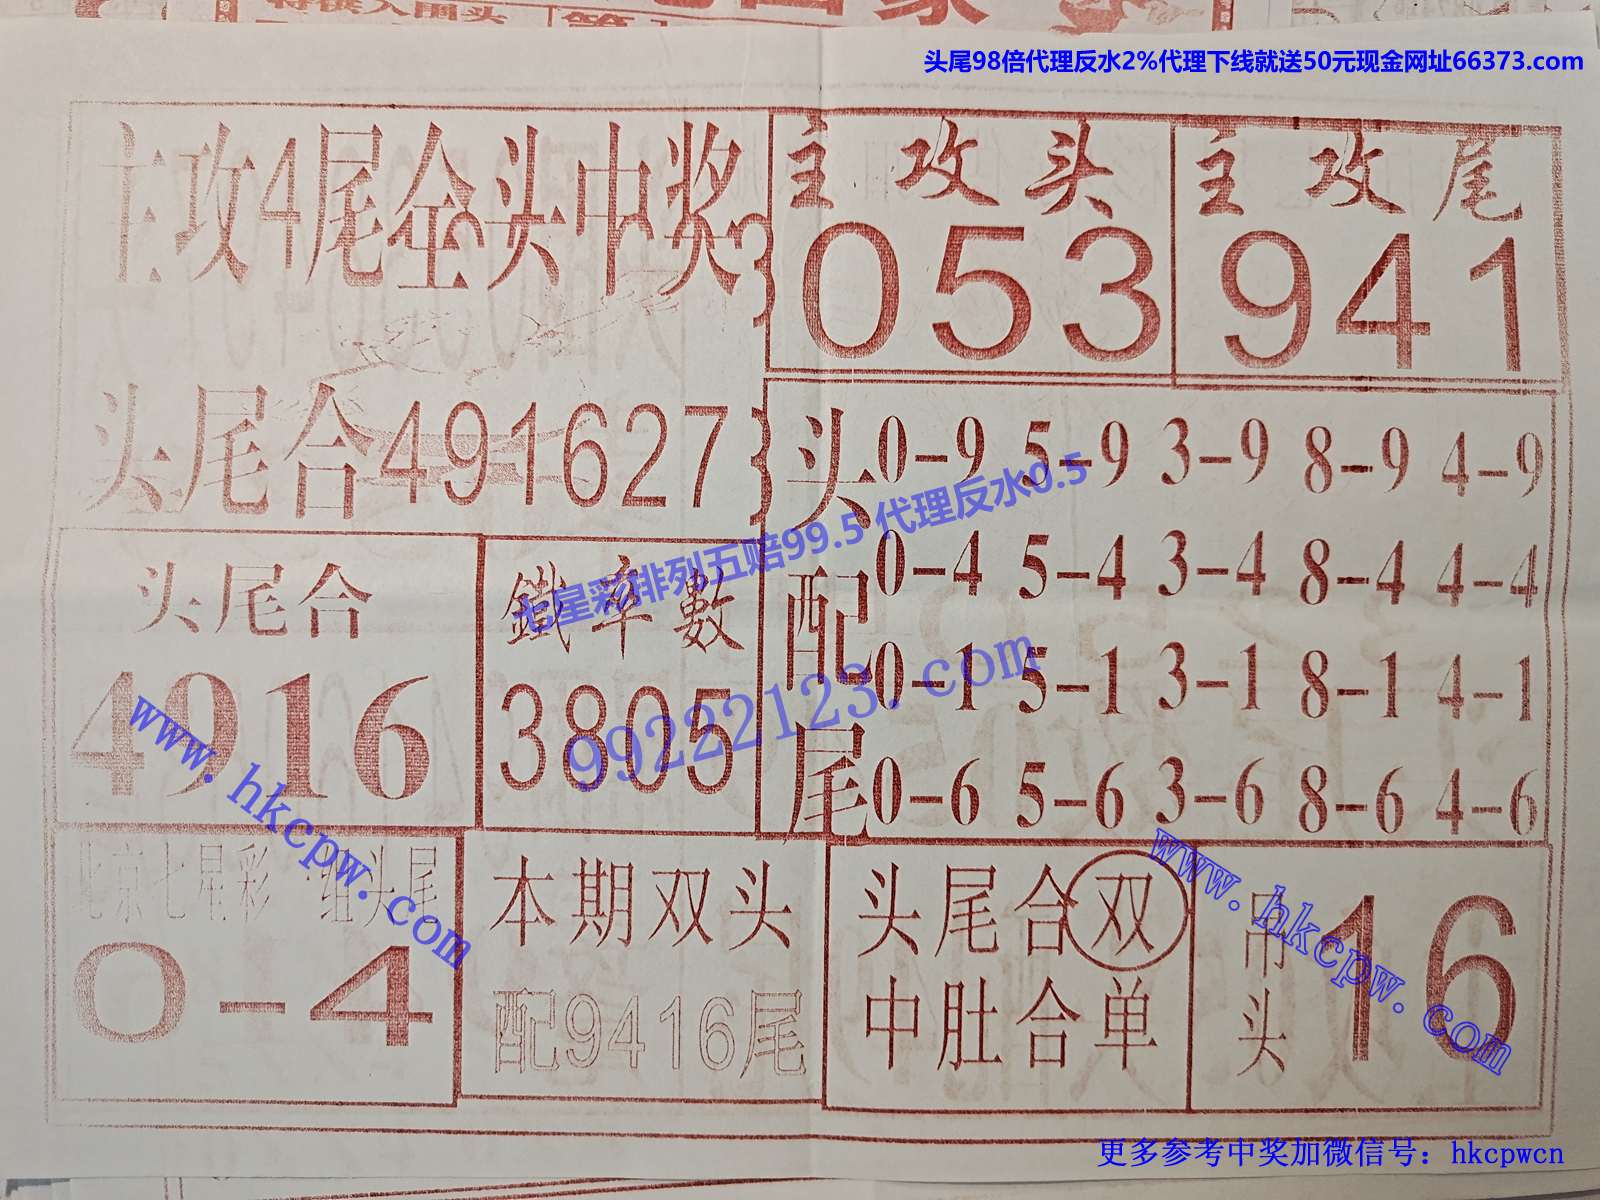 头尾98倍代理反水2%代理下线就送50元现金网址66373.com
主攻4尾全头中奖
主攻头
053
主攻尾
941
头尾合491627
头配尾
0-9 5-9 3-9 8-9 4-9
0-4 5-4 3-4 8-4 4-4
0-1 5-1 3-1 8-1 4-1
0-6 5-6 3-6 8-6 4-6
七星彩排列五赔99.5 代理反水0.5
99222123.com
头尾合
4916
鐵率數
3805
www.hkcpw.com
北京七星彩一组头尾
0-4
本期双头
配9416尾
头尾合双
中肚合单
吊头
16
www.hkcpw.com
更多参考中奖加微信号：hkcpwcn